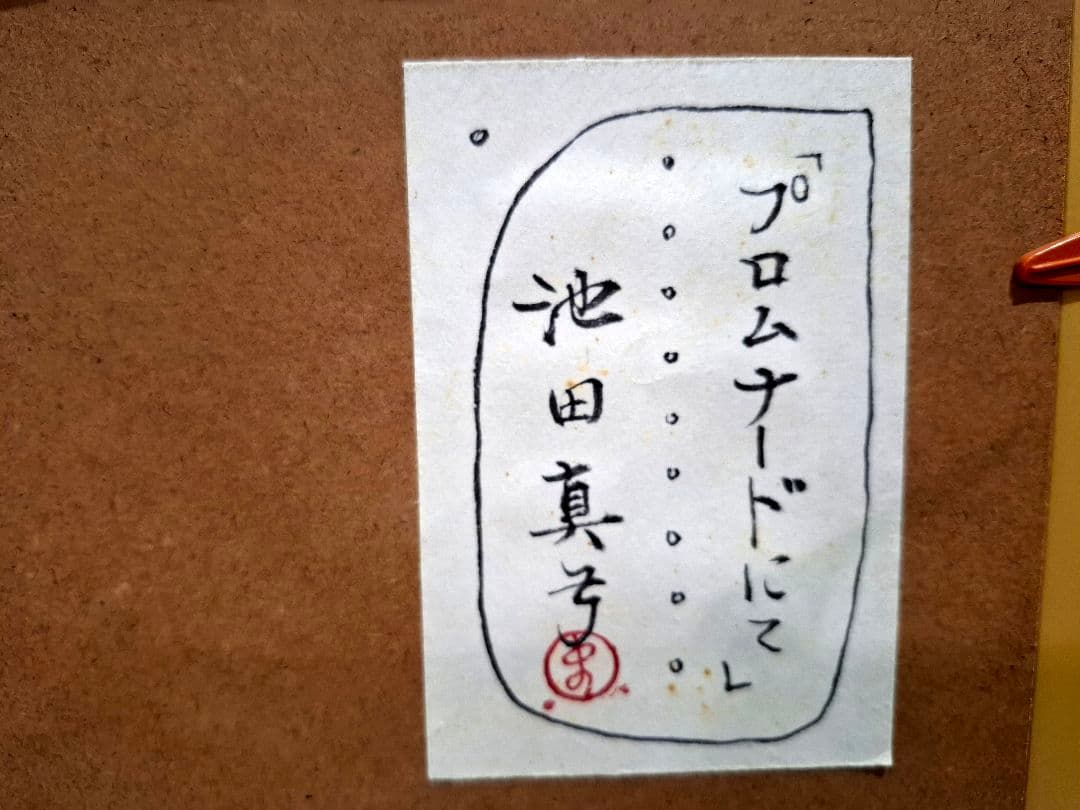 「プロムナードにて」
池田真号